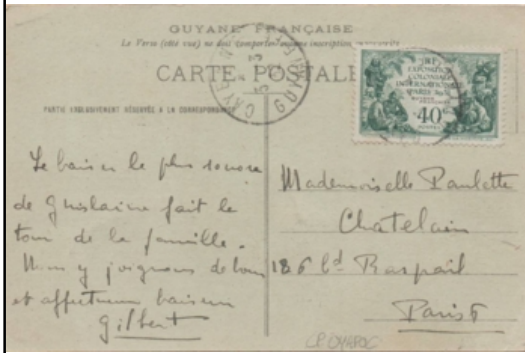 GUYANE FRANÇAISE
Le Verso (côté vue) ne doit comporter aucune inscription
CARTE POSTALE
PARTIE EXCLUSIVEMENT RÉSERVÉE A LA CORRESPONDANCE
EXPOSITION
COLONIALE
INTERNATIONALE
PARIS 1931
40
Le baiser le plus sonore
de Ghislaine fait le
tour de la famille.
Nous y joignons de bons
et affectueux baisers
Gilbert
Mademoiselle Paulette
Chatelain
126 bd Raspail
Paris 6